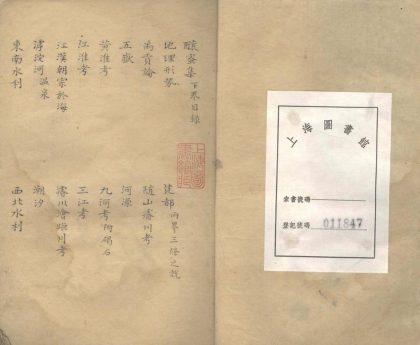 釀蜜集 下卷目錄
地理形勢 建都 兩界三條之說
禹貢論 隨山濬川考
五嶽 河源
黃淮考 九河考 附碣石
江考 三江考
江漢朝宗於海 濬川澮距川考
滹沱河 溫泉 潮汐
東南水利 西北水利
上海圖書館
索書號碼
登記號碼 011847